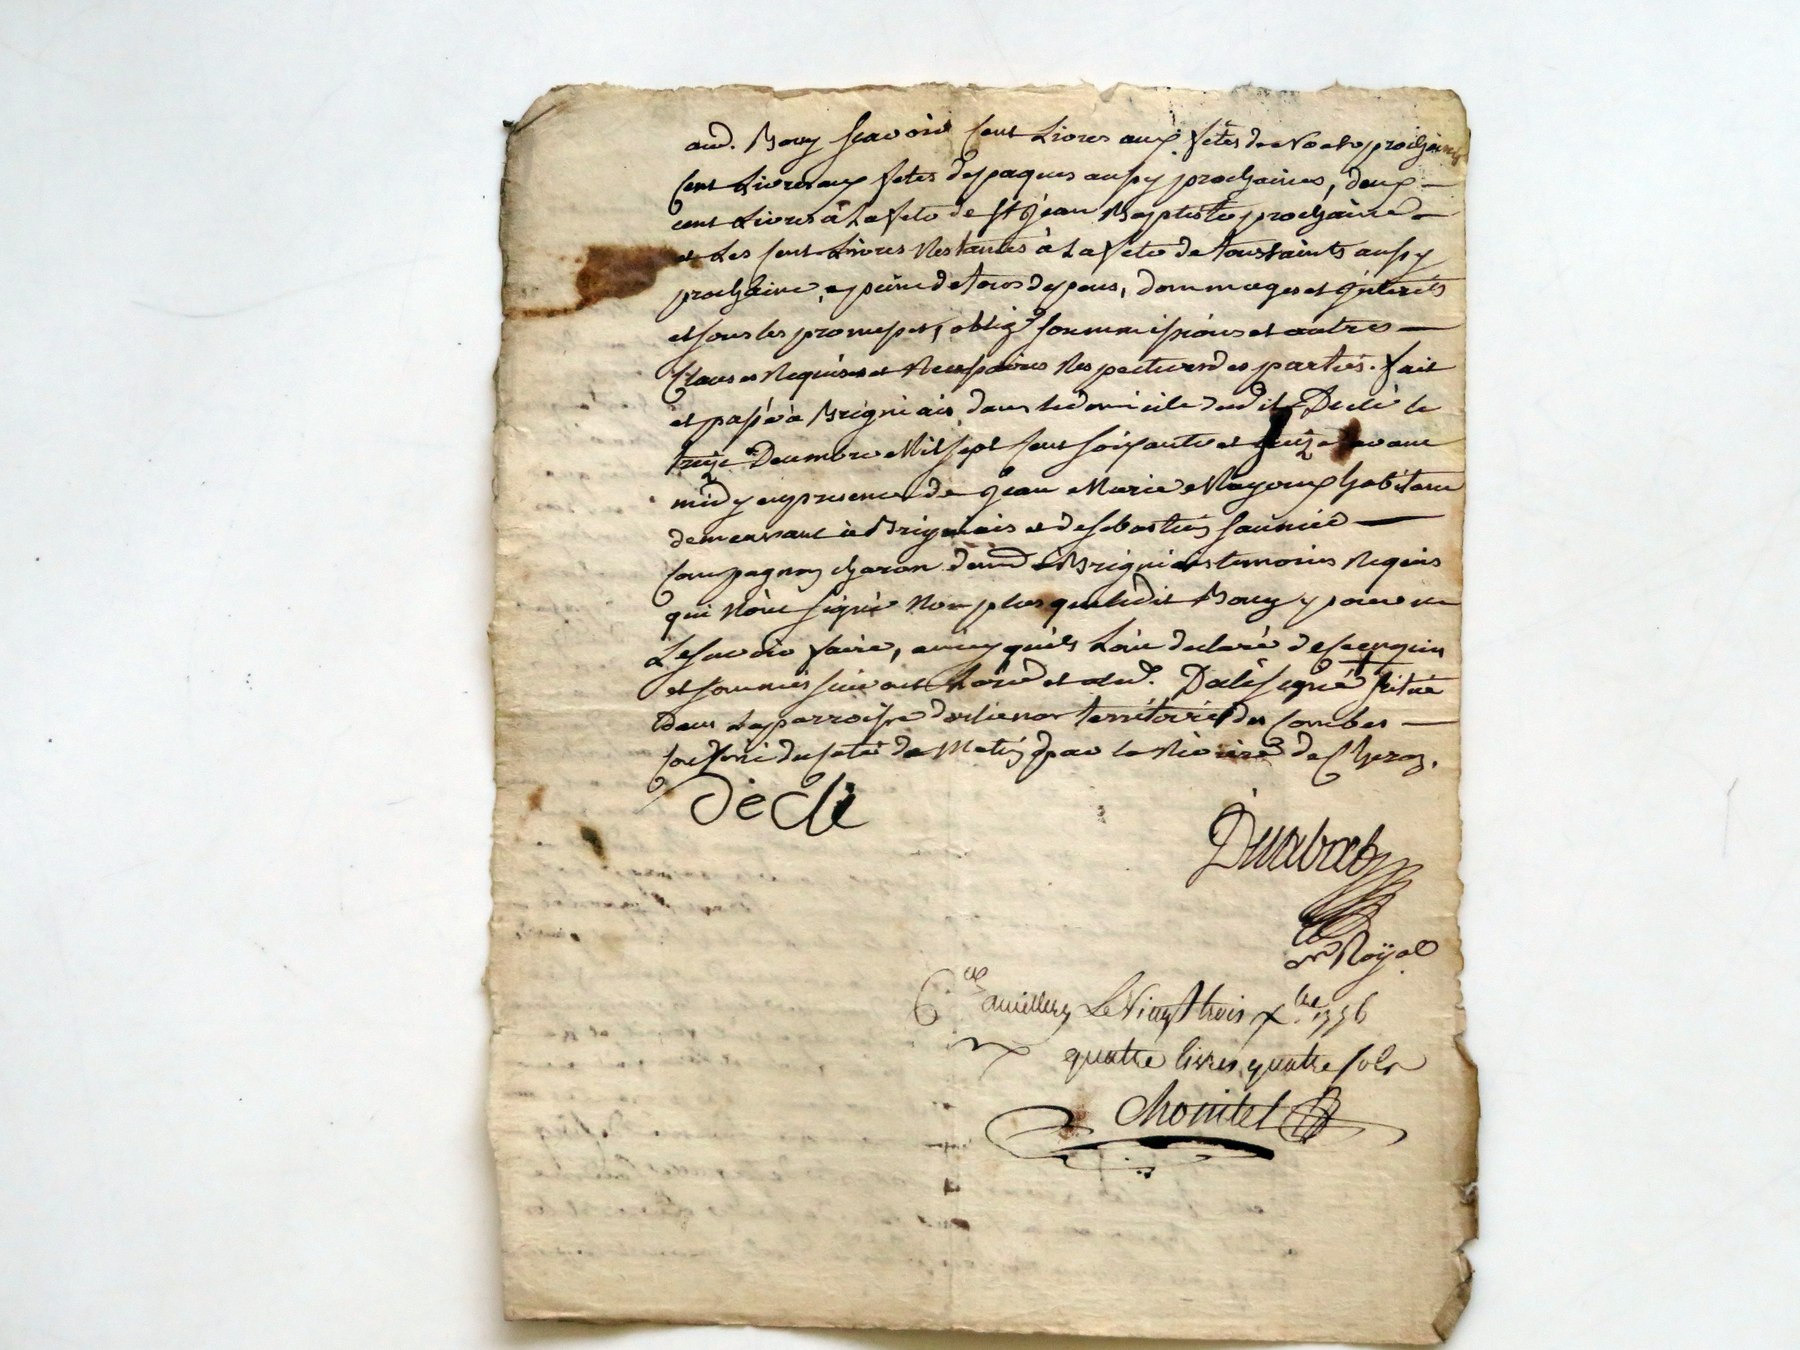 aud. Bouy scavoir cent Livres aux fêtes de Noel prochaines
cent Livres aux fetes de paques aussy prochaines, deux
cent Livres à La fete de st jean Baptiste prochaine
et Les cent Livres Restantes à La fete de toussaints aussy
prochaine, a peine de tous depens, dommages et interets
et sous les promesses, oblig.s soummissions et autres
Clauses Requises et Necessaires Respectives des parties. fait
et passé à Brignais dans le domicile dudit Decle le
treize Decembre Mil sept cent soixante et avant
midy en presence de jean Marie Mayoux habitant
demeurant à Brignais et de sebastien saunier
compagnon charon dem.t a Brignais temoins Requis
qui n'ont signé Non plus que ledit Bouy pour ne
Le savoir faire, ainsy qu'ils L'ont declaré de ce enquis
et sommés suivant Lord.
dans La parroisse territoire des Combes
du coté de Matin par la Riviere de
decle
Royal
Le Vingt trois X.bre
quatre livres quatre sols